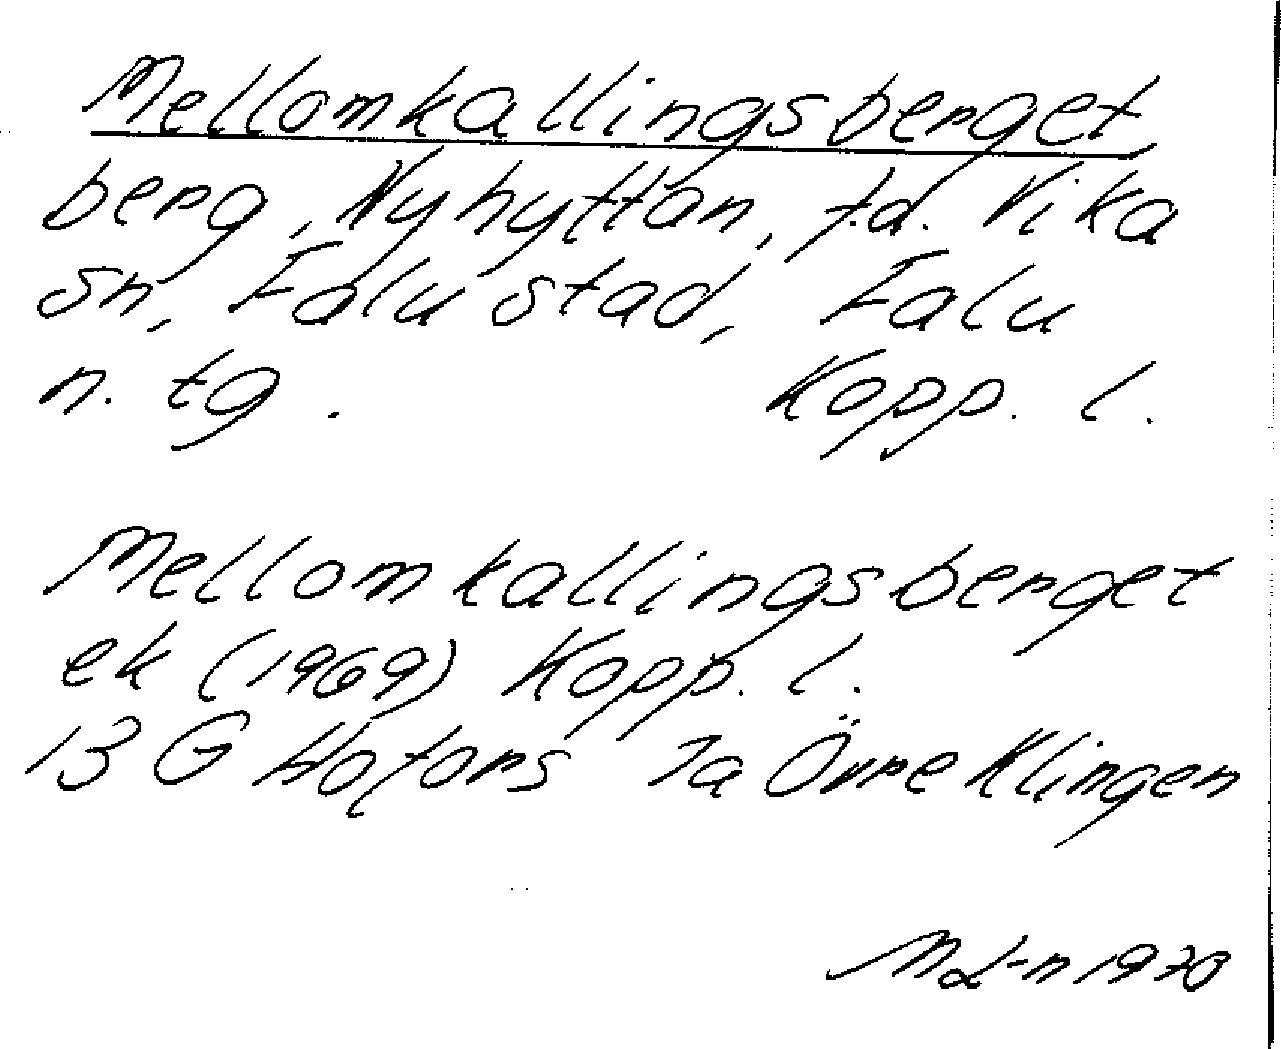 Mellomkallingsberget
berg, Nyhyttan, f.d. Vika
sn, Falu stad, Falu
n. tg. Kopp. l.
Mellomkallingsberget
ek (1969) Kopp. l.
13 G Hofors 7a Övre Klingen
M L-n 1970